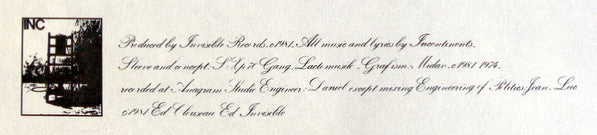 INC
Produced by Invisible Records. c1981. All music and lyrics by Incontinents.
Sleeve and concept: Gang. Lacto musik. Grafism. c1981 1974.
recorded at Anagram Studio Engineer: Daniel except mixing Engineering of Politics Jean. Luc
c1981 Ed Clouseau Ed Invisible